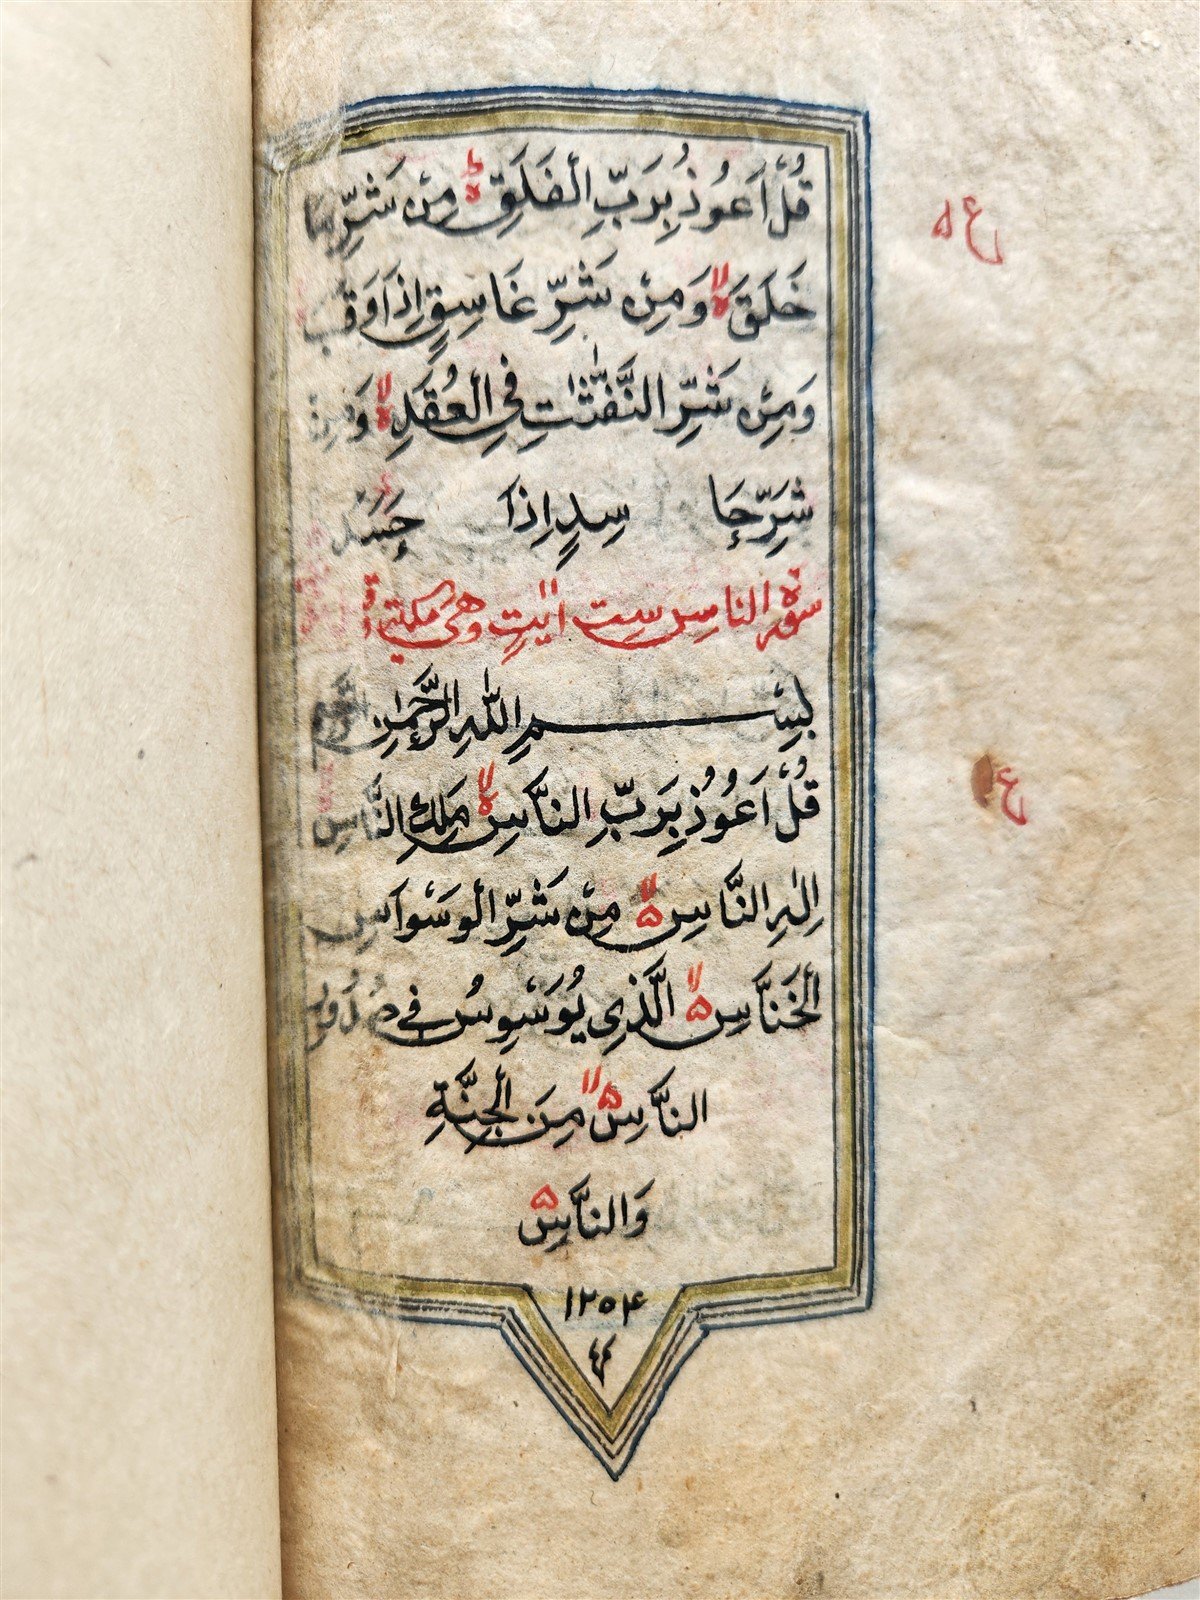 قُلْ اَعُوذُ بِرَبِّ الْفَلَقِ ۵ط مِنْ شَرِّ مَا
خَلَقَ ۵لا وَمِنْ شَرِّ غَاسِقٍ اِذَا وَقَبَ
وَمِنْ شَرِّ النَّفّٰثٰتِ فِي الْعُقَدِ ۵لا وَمِنْ
شَرِّ حَاسِدٍ اِذَا حَسَدَ
سورة الناس ست اٰيٰتٍ وهى مكية
بِسْمِ اللّٰهِ الرَّحْمٰنِ
قُلْ اَعُوذُ بِرَبِّ النَّاسِ ۵لا مَلِكِ النَّاسِ
اِلٰهِ النَّاسِ ۵لا مِنْ شَرِّ الْوَسْوَاسِ
الْخَنَّاسِ ۵لا الَّذِى يُوَسْوِسُ فِى صُدُورِ
النَّاسِ ۵لا مِنَ الْجِنَّةِ
وَالنَّاسِ ۵
١٢٥٤
ع ۵
ع